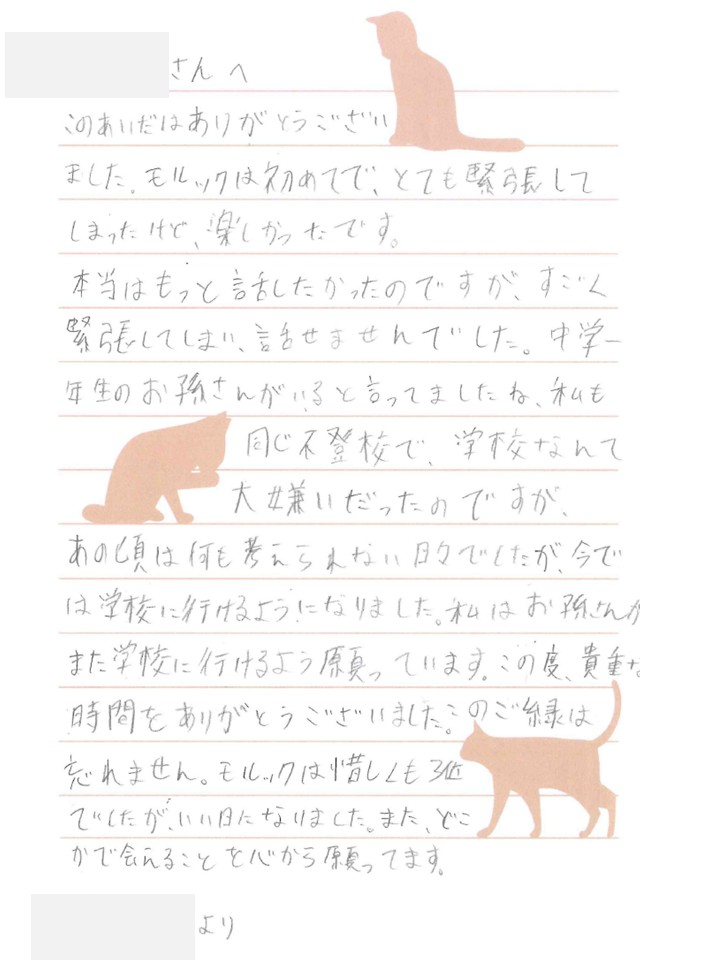 さんへ
このあいだはありがとうござい
ました。モルックは初めてで、とても緊張して
しまったけど、楽しかったです。
本当はもっと話したかったのですが、すごく
緊張してしまい、話せませんでした。中学一
年生のお孫さんがいると言ってましたね、私も
同じ不登校で、学校なんて
大嫌いだったのですが、
あの頃は何も考えられない日々でしたが、今で
は学校に行けるようになりました。私はお孫さんが
また学校に行けるよう願っています。この度、貴重な
時間をありがとうございました。このご縁は
忘れません。モルックは惜しくも3位
でしたが、いい日になりました。また、どこ
かで会えることを心から願ってます。
より